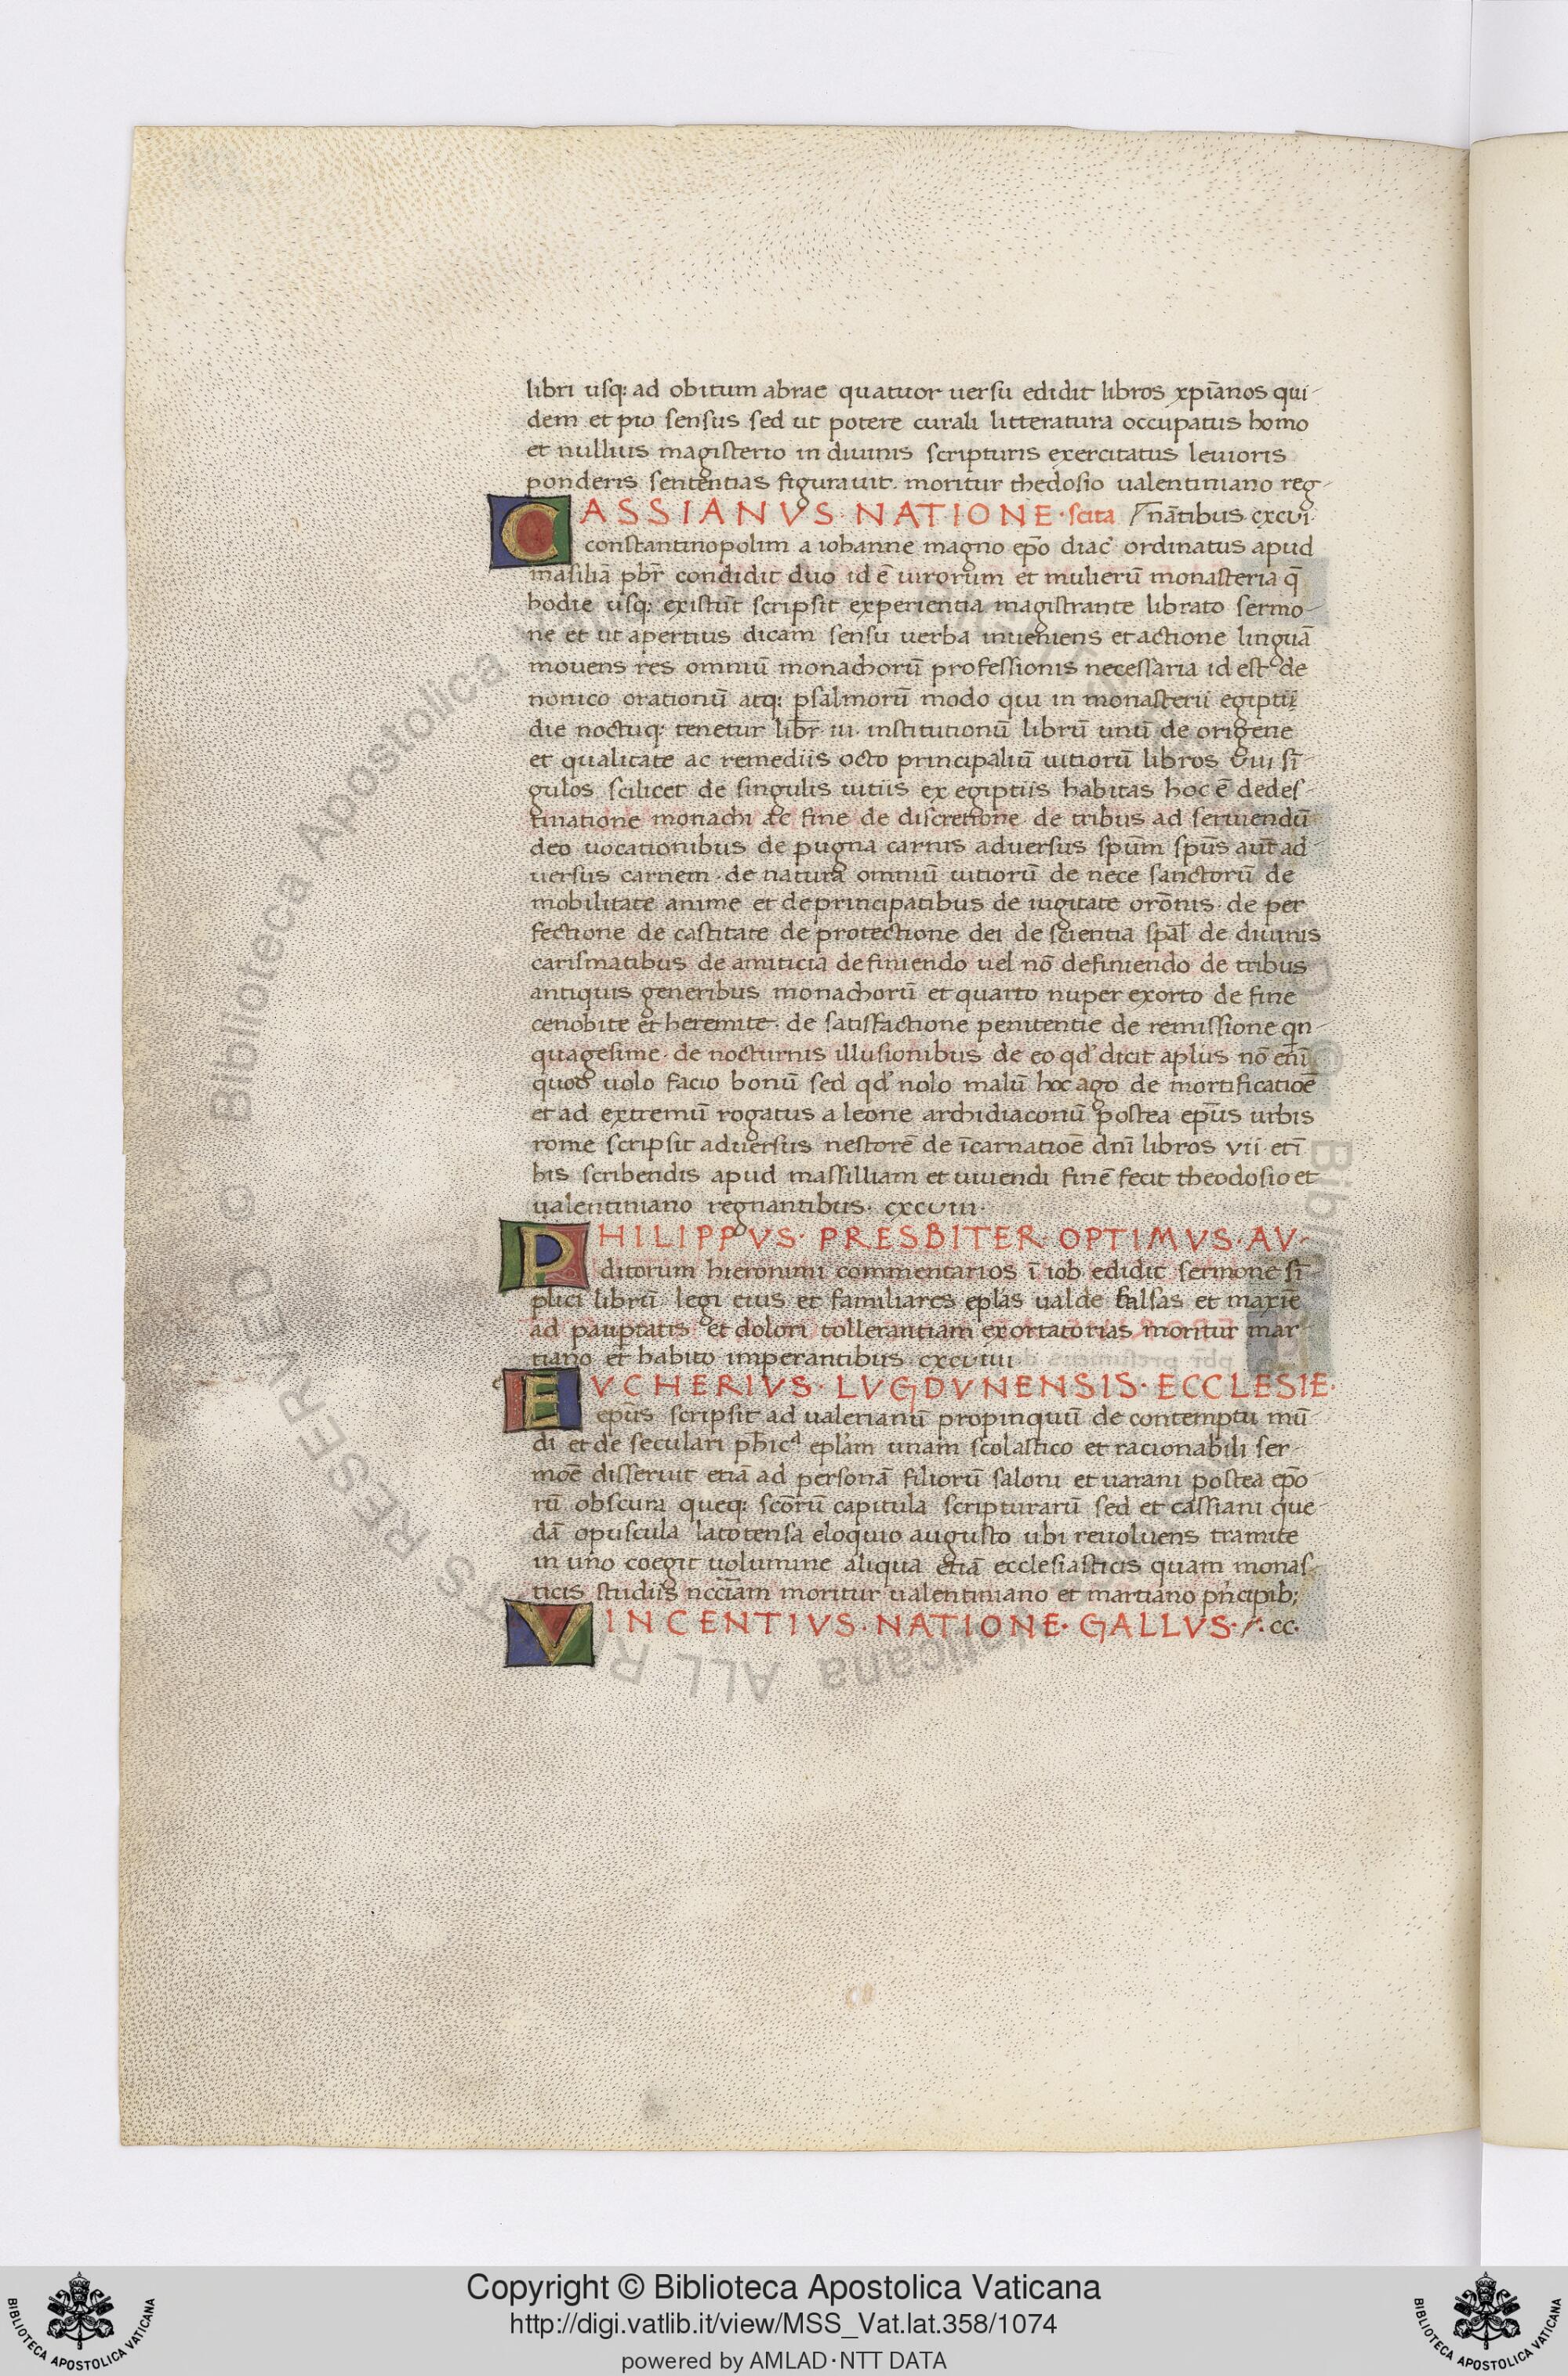 libri usq: ad obitum abrae quatuor uersu edidit libros xpīanos qui-
dem et pio sensus sed ut potere curali litteratura occupatus homo
et nullius magisterio in diuinis scripturis exercitatus leuioris
ponderis sententias figurauit. moritur thedosio ualentiniano reg-
CASSIANVS NATIONE · scita nātibus · cxcvi ·
constantinopolim a iohanne magno ep̄o diac̄ ordinatus apud
masiliā pb̄r condidit duo id ē uirorum et mulierū monasteria q̄
hodie usq: existūt scripsit experientia magistrante librato sermo-
ne et ut apertius dicam sensu uerba inueniens et actione linguā
mouens res omniū monachorū professionis necessaria id est de
nonico orationū atq: psalmorū modo qui in monasterii egiptii
die noctuq: tenetur lib̄r · iii · institutionū librū unū de origene
et qualitate ac remediis octo principaliū uitiorū libros viii sī-
gulos scilicet de singulis uitiis ex egiptiis habitas hoc ē dedes-
tinatione monachi ac fine de discretione de tribus ad seruiendū
deo uocationibus de pugna carnis aduersus spūm spūs aūt ad
uersus carnem · de natura omniū uitiorū de nece sanctorū de
mobilitate anime et de principatibus de iugitate orōnis · de per
fectione de castitate de protectione dei de scientia spāl de diuinis
carismatibus de amiticia definiendo uel nō definiendo de tribus
antiquis generibus monachorū et quarto nuper exorto de fine
cenobite et heremite · de satisfactione penitentie de remissione qn-
quagesime · de nocturnis illusionibus de eo qd' dicit aplus nō enī
quod uolo facio bonū sed qd' nolo malū hoc ago de mortificatioē
et ad extremū rogatus a leone archidiaconū postea ep̄us urbis
rome scripsit aduersus nestorē de īcarnatioē dnī libros vii · et ī
his scribendis apud massilliam et uiuendi finē fecit theodosio et
ualentiniano regnantibus · cxcviii ·
PHILIPPVS · PRESBITER OPTIMVS · AV ·
ditorum hieronimi commentarios ī iob edidit sermone sī-
plici librū legi eius et familiares eplās ualde falsas et maxīe
ad paupertatis et dolori tollerantiam exortatorias moritur mar-
tiano et habito imperantibus cxcviiii
EVCHERIVS · LVGDVNENSIS · ECCLESIE ·
ep̄us scripsit ad ualerianū propinquū de contemptu mū
di et de seculari ph̄ica eplam unam scolastico et racionabili ser-
moē disseruit etiā ad personā filiorū saloni et uarani postea ep̄o
rū obscura queq: scōrū capitula scripturarū sed et cassiani que
dā opuscula lato tensa eloquio augusto ubi reuoluens tramite
in uno coegit uolumine aliqua etiā ecclesiasticis quam monas-
ticis studiis nccīam moritur ualentiniano et martiano pn̄cipib;
VINCENTIVS · NATIONE · GALLVS · cc ·
Copyright © Biblioteca Apostolica Vaticana
http://digi.vatlib.it/view/MSS_Vat.lat.358/1074
powered by AMLAD·NTT DATA
BIBLIOTECA APOSTOLICA VATICANA
BIBLIOTECA APOSTOLICA VATICANA